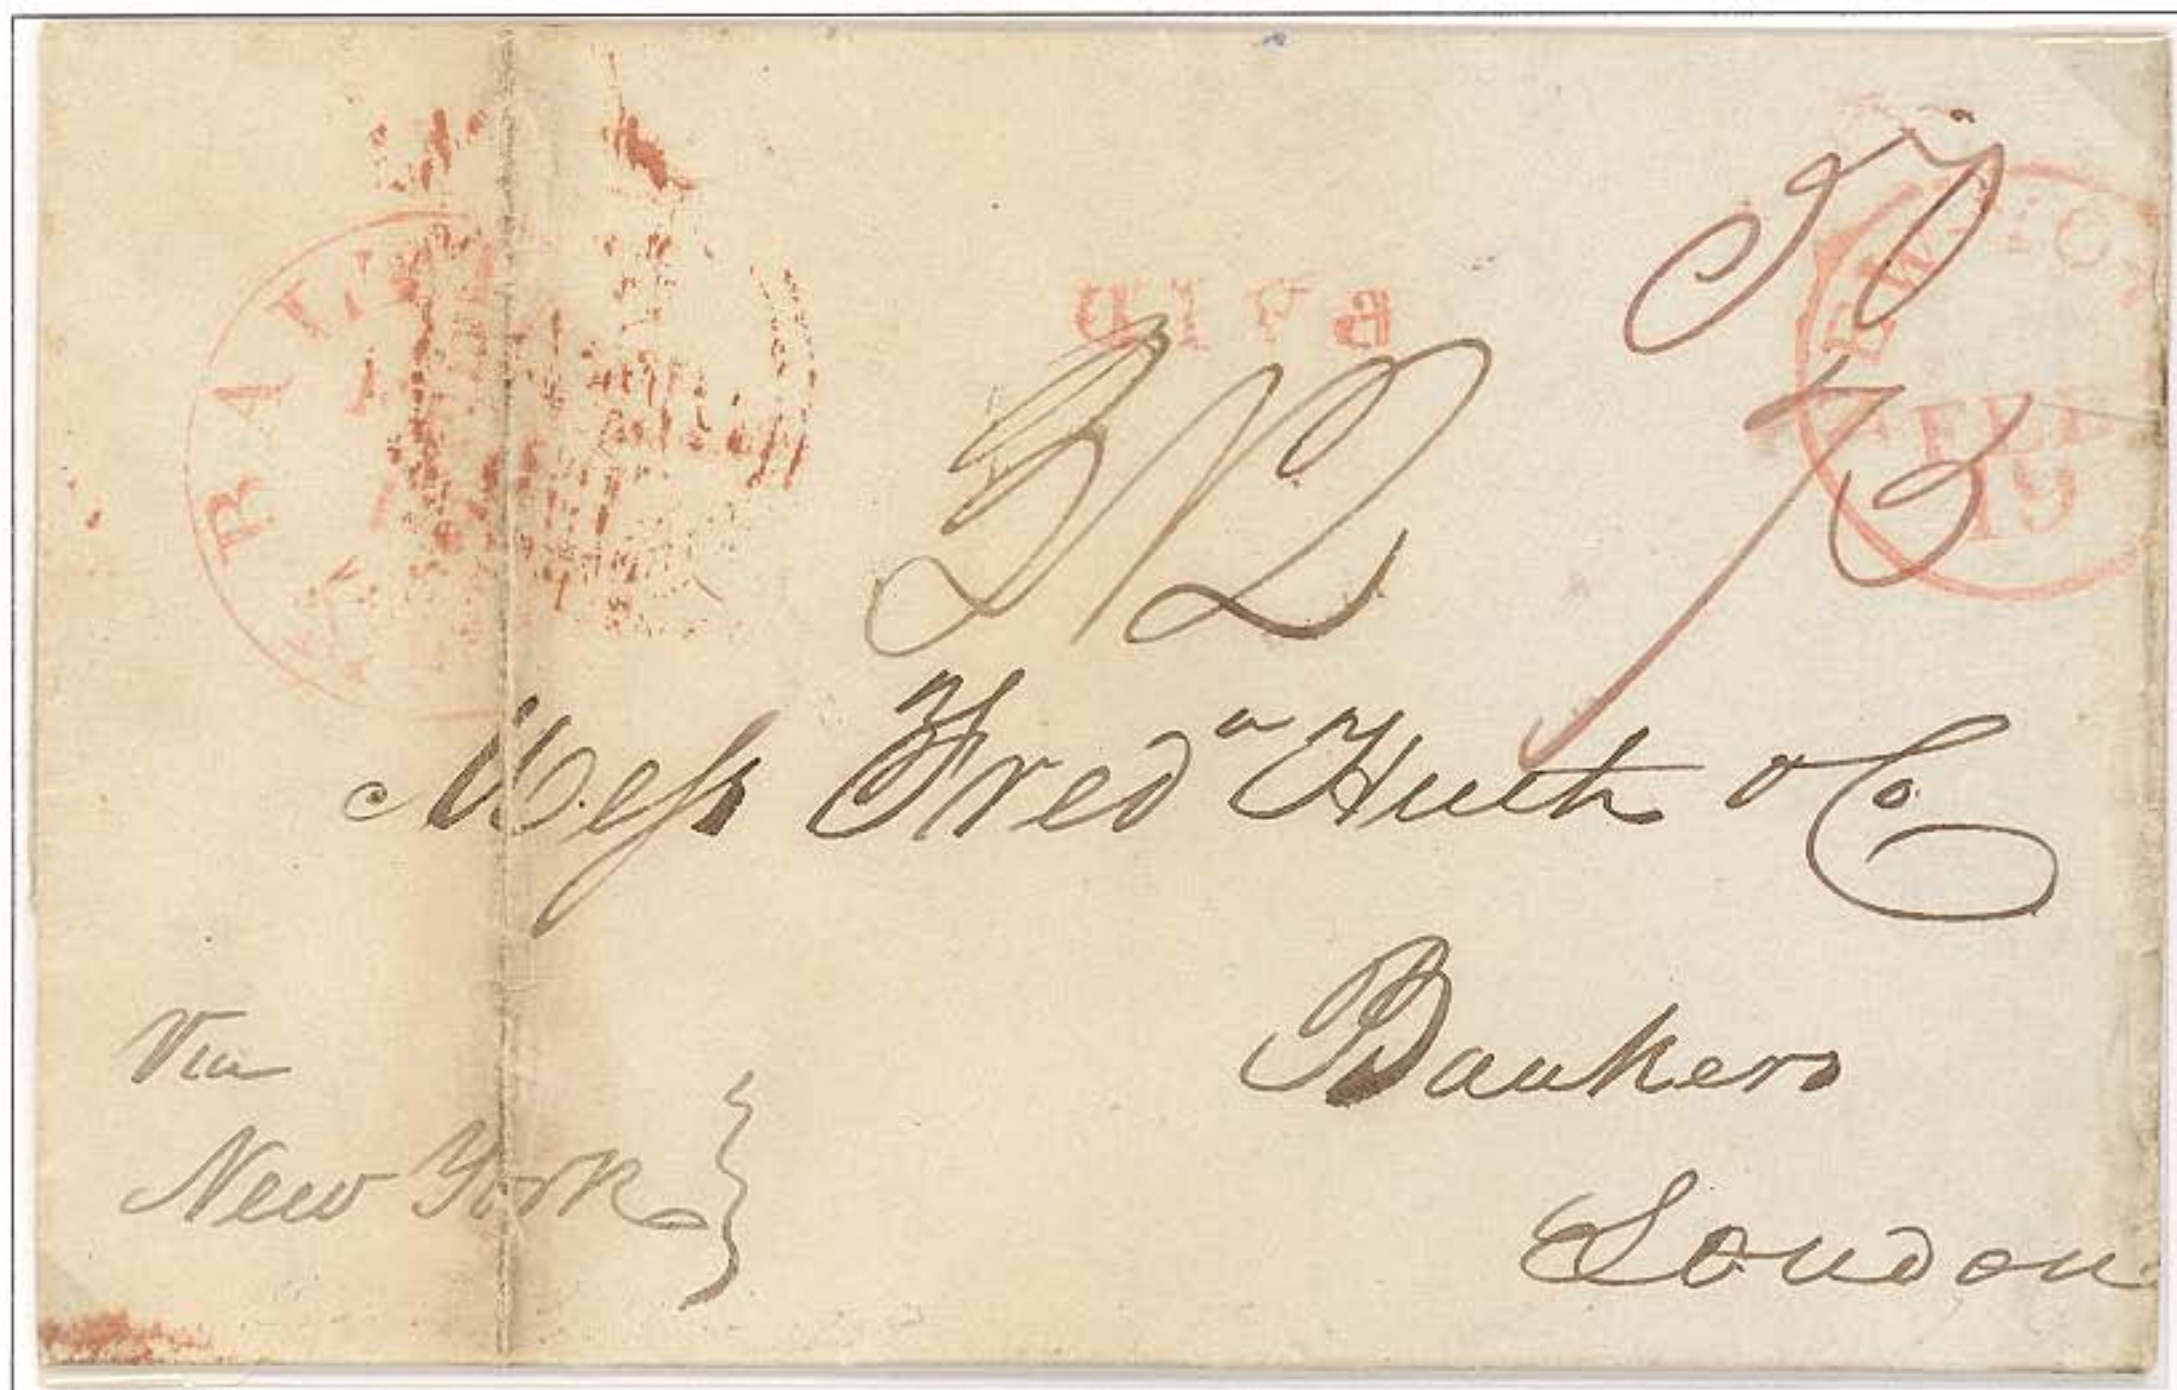 BAL
PAID
312
NEW YOR
FEB
19
Mess Fredk Huth & Co
Bankers
London
Via
New York